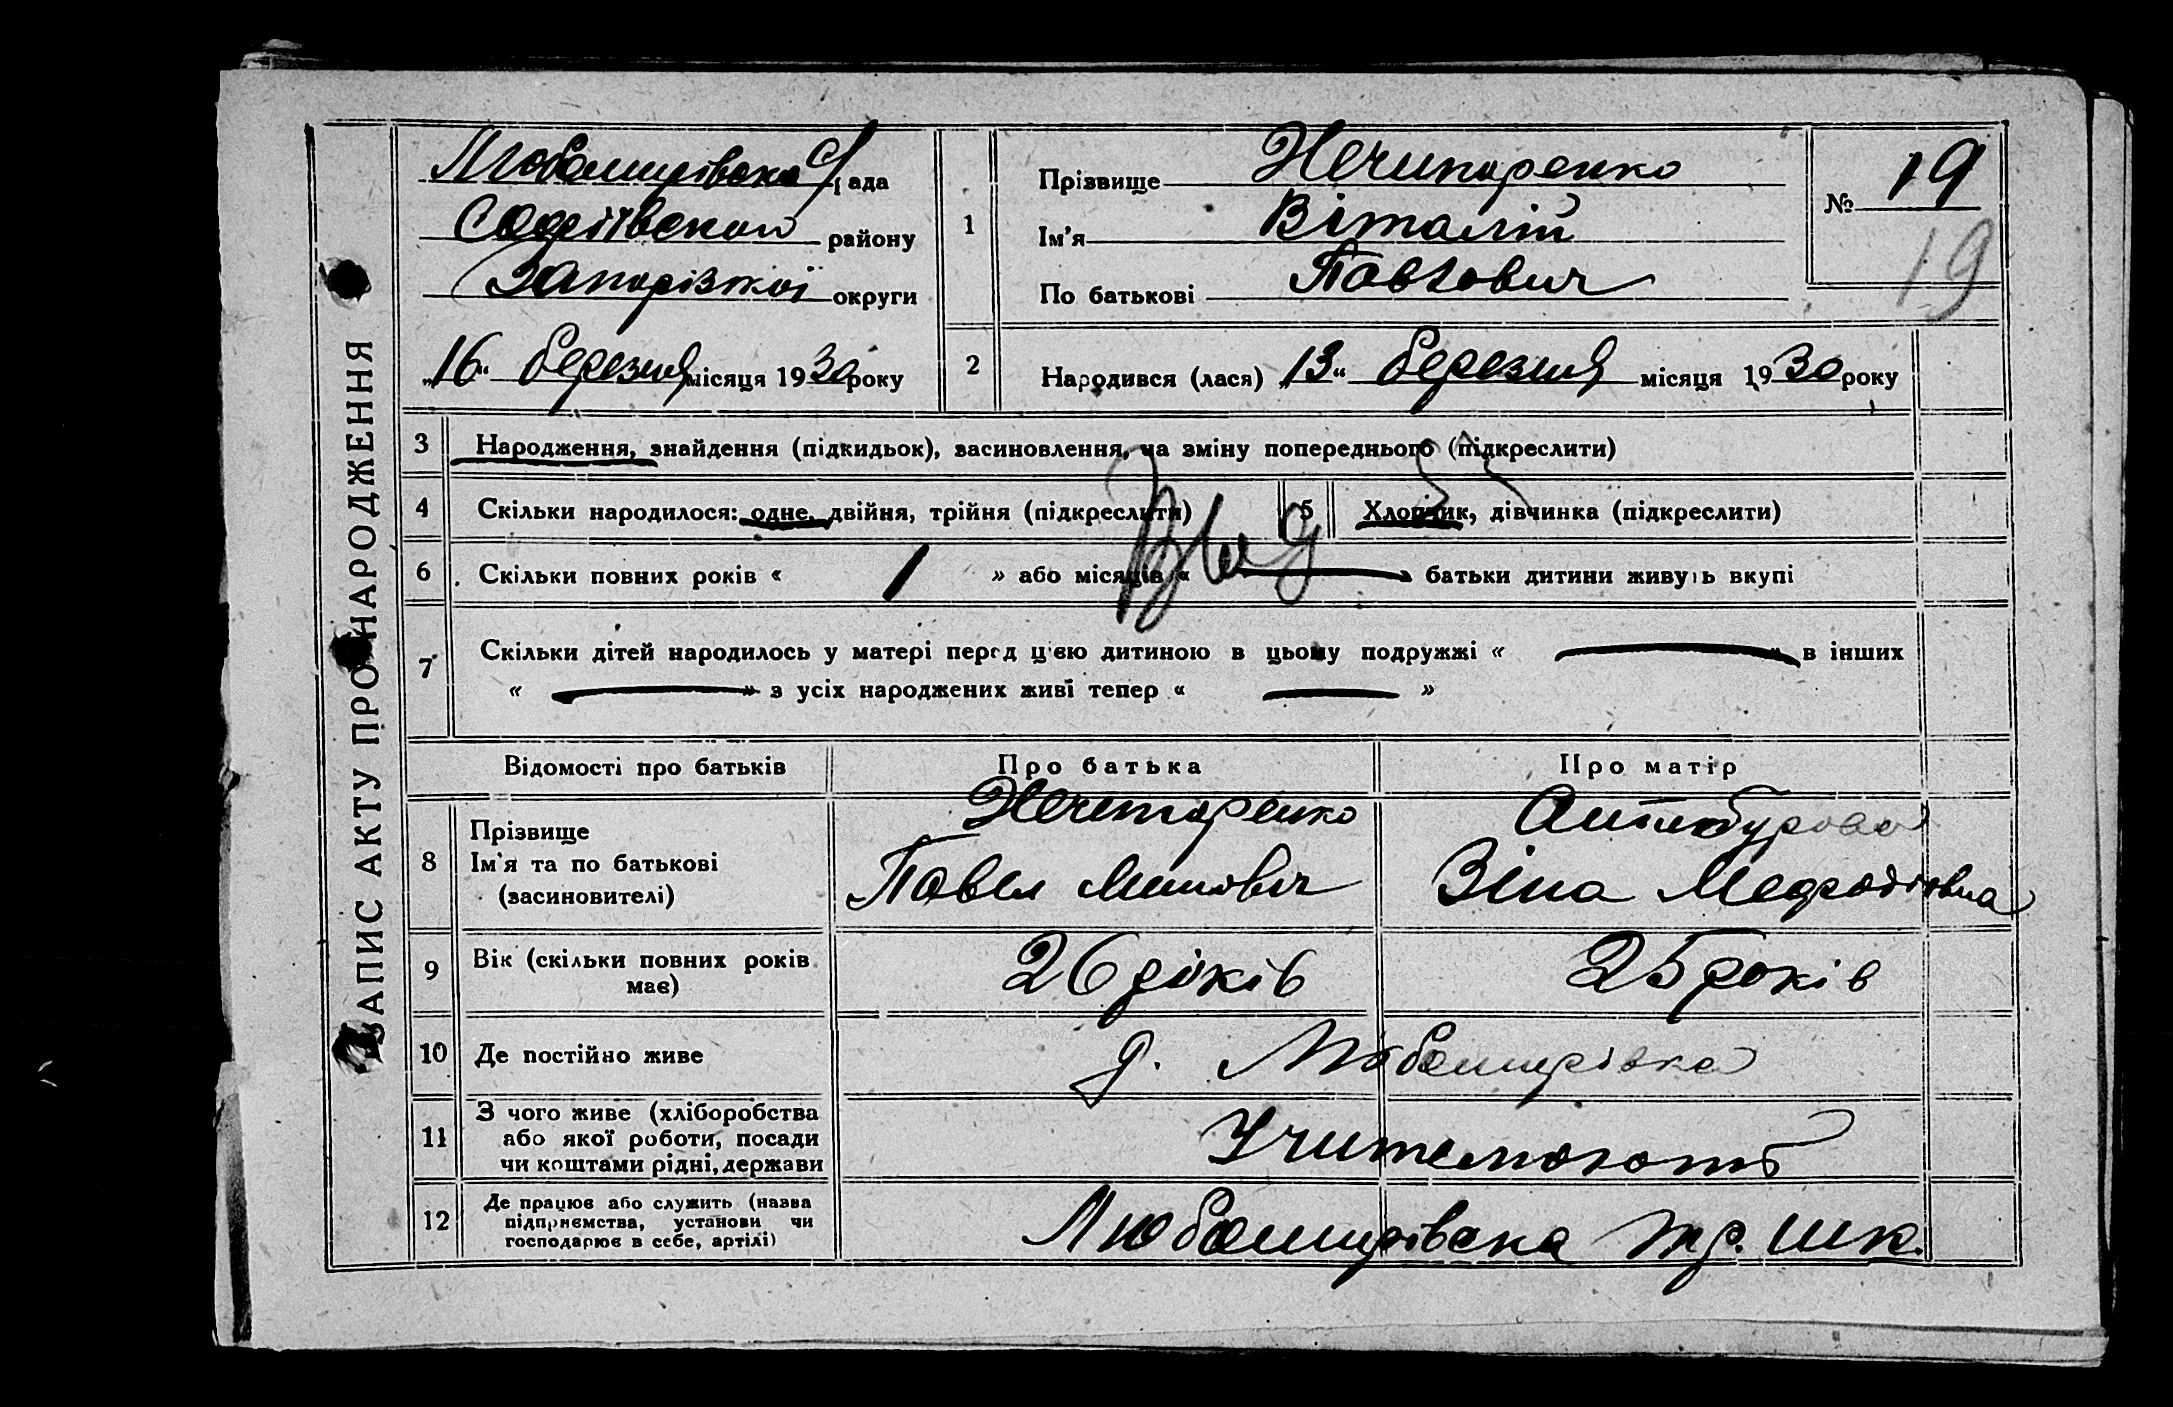 ЗАПИС АКТУ ПРО НАРОДЖЕННЯ
Любомирівська с/рада
Софіївської району
Запорізької округи
„16“ березня місяця 1930 року
1
Прізвище Нечипоренко
Ім'я Віталій
По батькові Павлович
№ 19
19
2
Народився (лася) „13“ березня місяця 1930 року
3 Народження, знайдення (підкидьок), засиновлення, на зміну попереднього (підкреслити)
4 Скільки народилося: одне, двійня, трійня (підкреслити) 5 Хлопчик, дівчинка (підкреслити)
6 Скільки повних років « 1 » або місяців « — » батьки дитини живуть вкупі
7 Скільки дітей народилось у матері перед цією дитиною в цьому подружжі « — » в інших
« — » з усіх народжених живі тепер « — »
Відомості про батьків Про батька Про матір
8 Прізвище
Ім'я та по батькові
(засиновителі)
Нечипоренко
Павел
Зіна Мефодіовна
9 Вік (скільки повних років
має)
26 років 25 років
10 Де постійно живе
Любомирівка
11 З чого живе (хліборобства
або якої роботи, посади
чи коштами рідні, держави
Учителюють
12 Де працює або служить (назва
підприємства, установи чи
господарює в себе, артілі)
Любомирівска тр. шк.